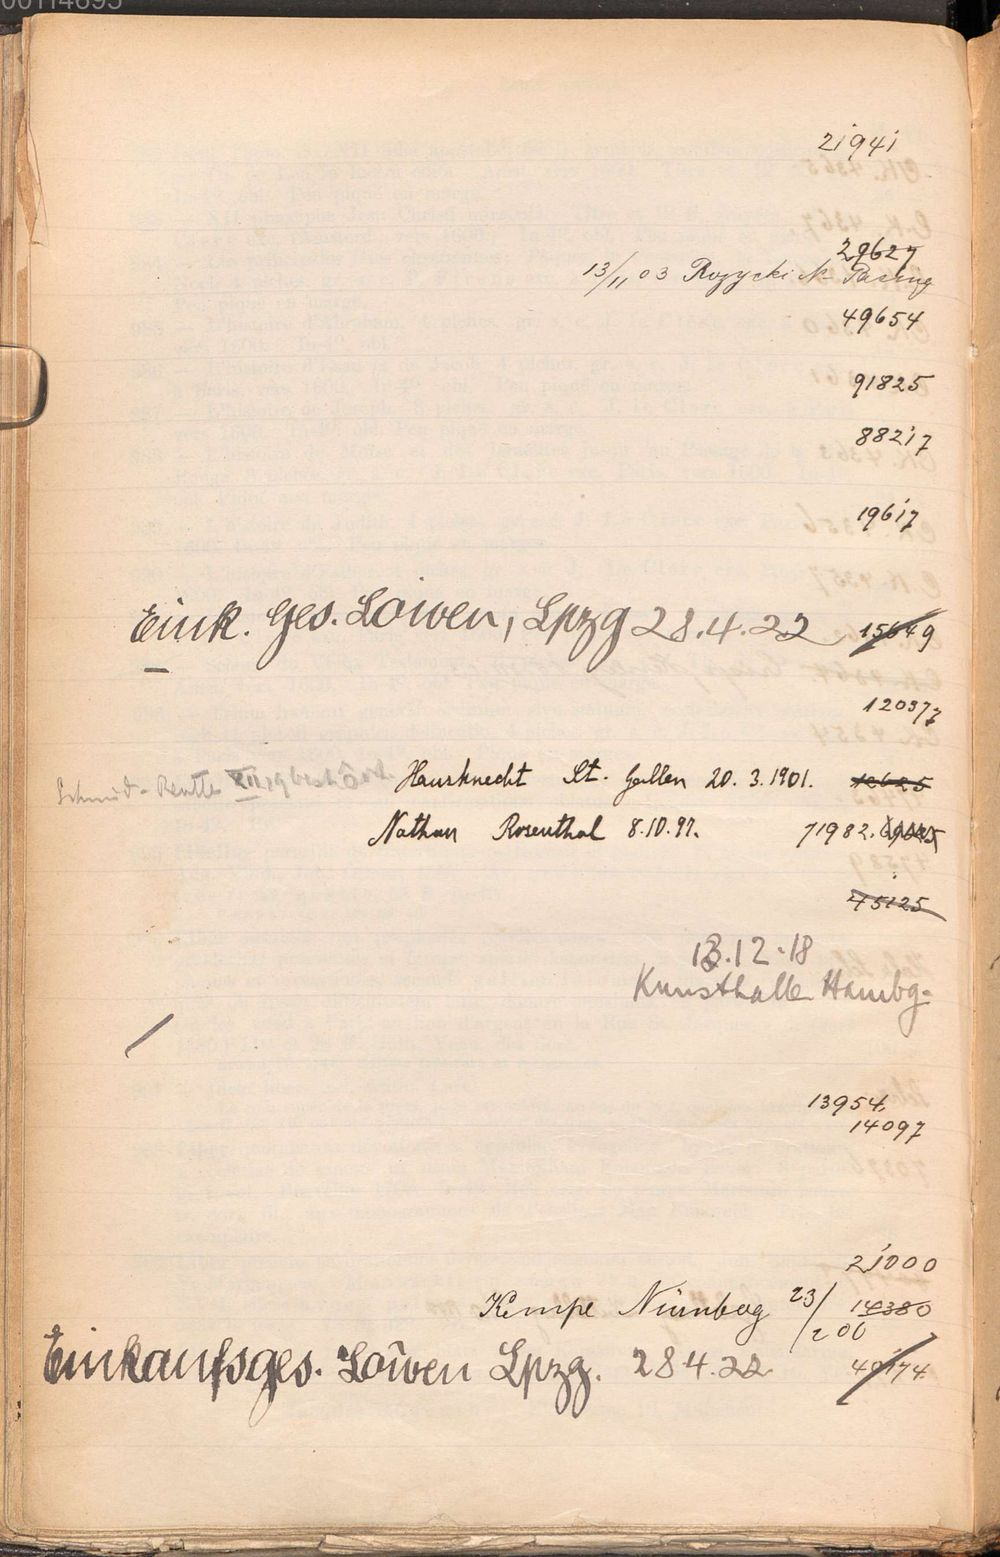 00114695
21941
29627
13/11 03 Rozycki N Pasing
49654
91825
88217
19617
Eink. Ges. Löwen, Lpzg 28.4.22 15649
120377
Hausknecht St. Gallen 20. 3. 1901. 12625
Nathan Rosenthal 8.10.97. 71982.
45125
13.12.18
Kunsthalle Hambg.
13954
14097
21000
Kempe Nürnbg 23/2 06 14380
Einkaufsges. Löwen Lpzg. 28 4.22 49174